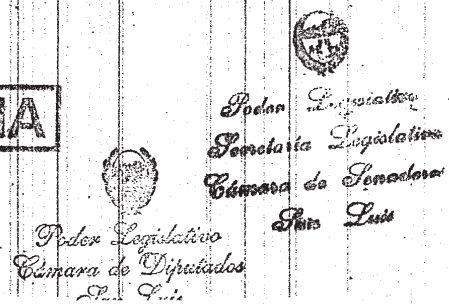 MA
Poder Legislativo
Secretaría Legislativa
Cámara de Senadores
San Luis
Poder Legislativo
Cámara de Diputados
San Luis